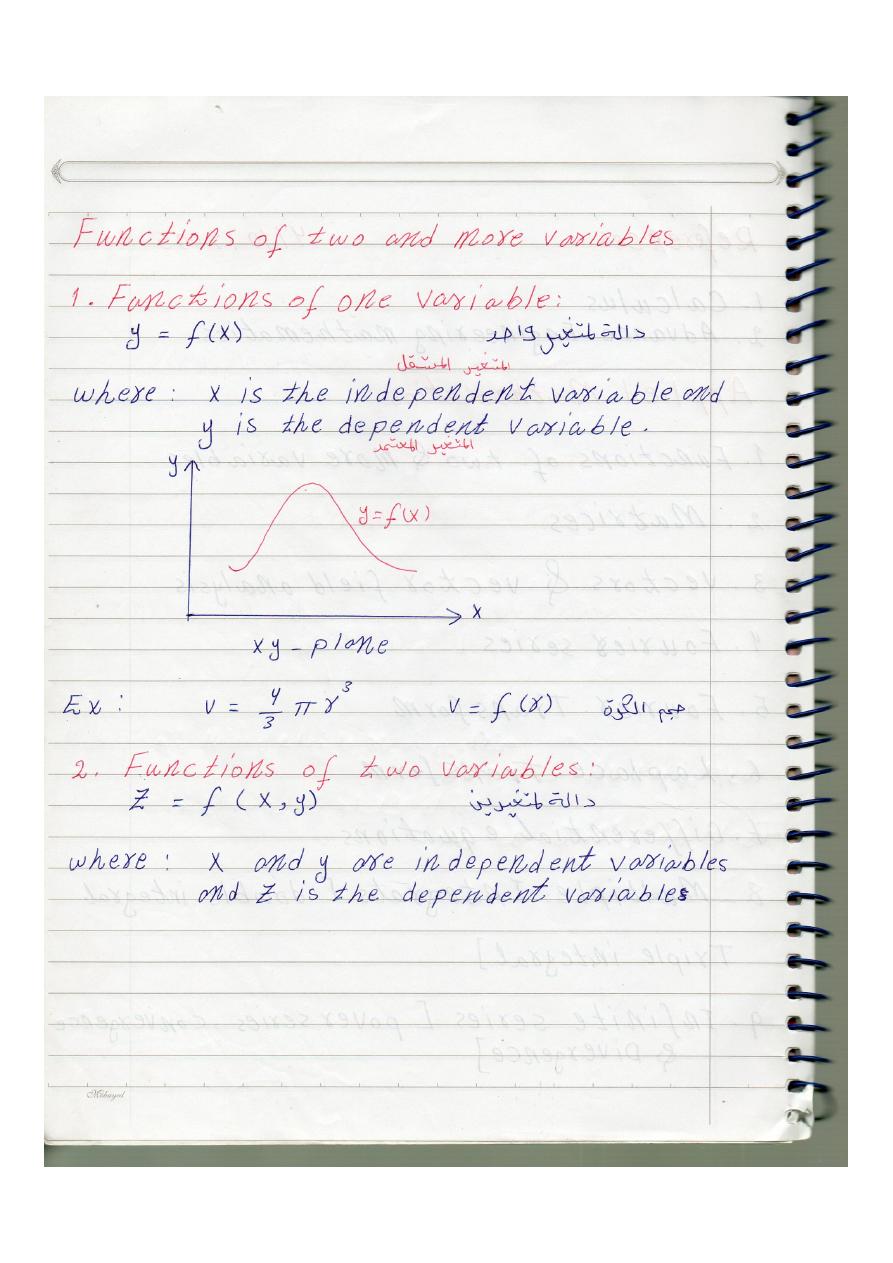 Functions of two and more variables
1. Functions of one variable:
y = f(x) دالة لمتغير واحد
المتغير المستقل
where : x is the independent variable and
y is the dependent variable.
المتغير المعتمد
y
y=f(x)
x
xy - plane
Ex : v = 4/3 π r³ v = f(r) حجم الكرة
2. Functions of two variables:
Z = f (x,y) دالة لمتغيرين
where : x and y are independent variables
and Z is the dependent variables
Mohayed